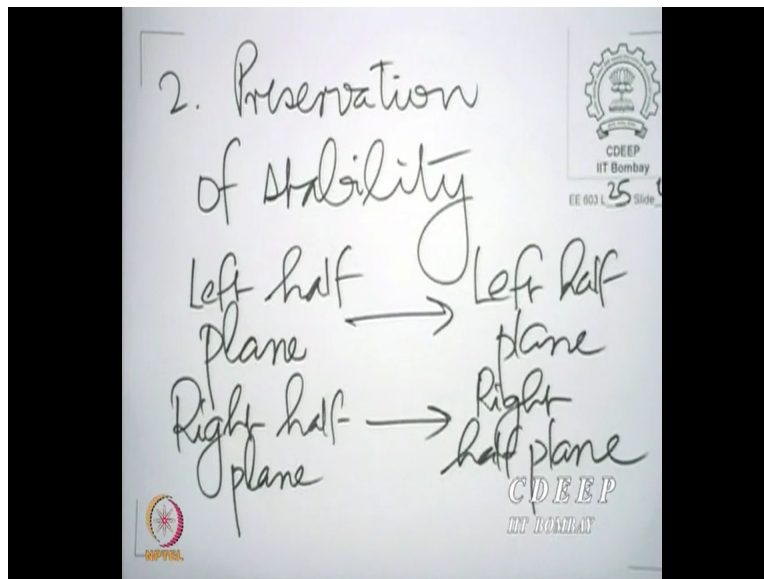 2. Preservation
of stability
CDEEP
IIT Bombay
EE 603 L 25 Slide
Left half
plane
→
Left half
plane
Right half
plane
→
Right
half plane
CDEEP
IIT BOMBAY
NPTEL